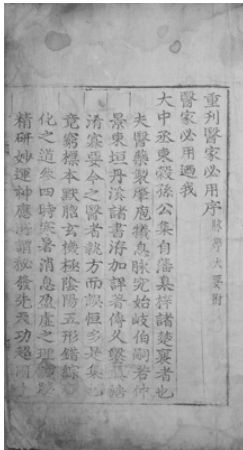 重刊醫家必用序 脉學大要附
醫家必用過我
大中丞東穀孫公集自藩臬擇諸楚襄者也
夫醫藥製肇庖犧息脉究始岐伯嗣若仲
景東垣丹溪諸書洊加詳著傳久
清寡要今之醫者執方而誤恒多是集
竟窮標本默膽玄機極陰陽五形錯
化之道參四時寒暑消息盈虛之理
精研妙運神應所謂秘發先天功超